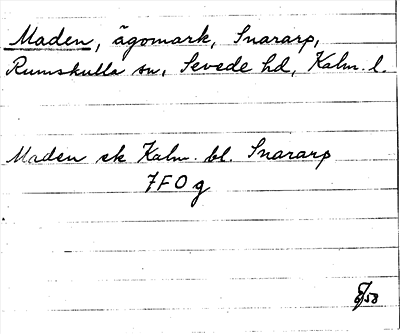 Maden, ägomark, Snararp,
Rumskulla sn, Sevede hd, Kalm. l.
Maden ek Kalm. bl. Snararp
7F0g